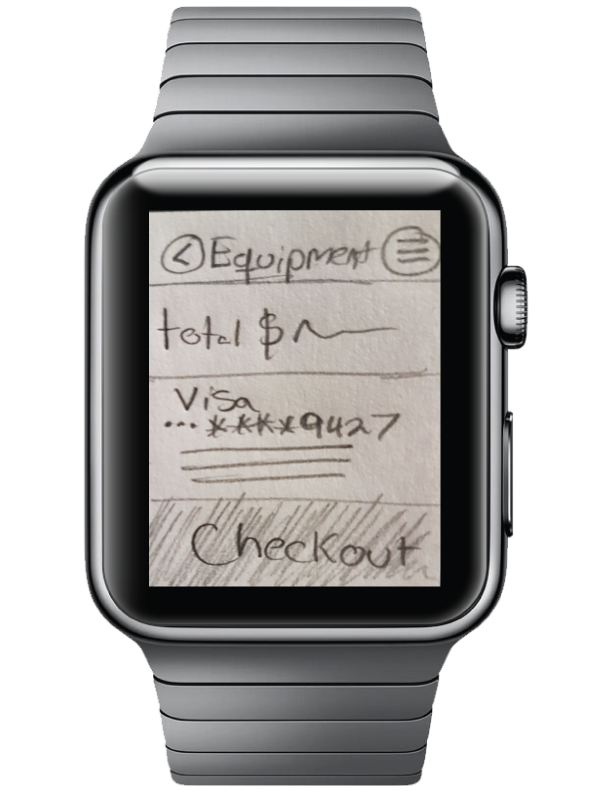 < Equipment
total $
Visa
... ****9427
Checkout